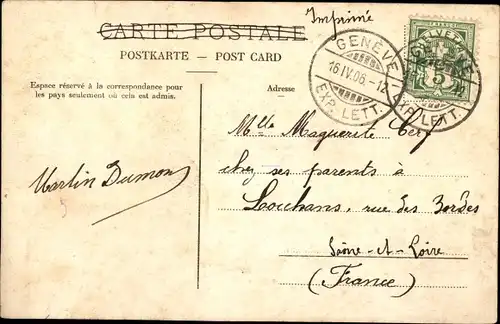 CARTE POSTALE
Imprimé
POSTKARTE — POST CARD
Espace réservé à la correspondance pour
les pays seulement où cela est admis.
Adresse
GENÈVE
16.IV.06.-12
EXP. LETT.
HELVETIA
GENÈVE
5
EXP. LETT.
Mlle Maguerite
chez ses parents à
Louhans, rue des Bordes
Saône-et-Loire
(France)
Martin Dumon